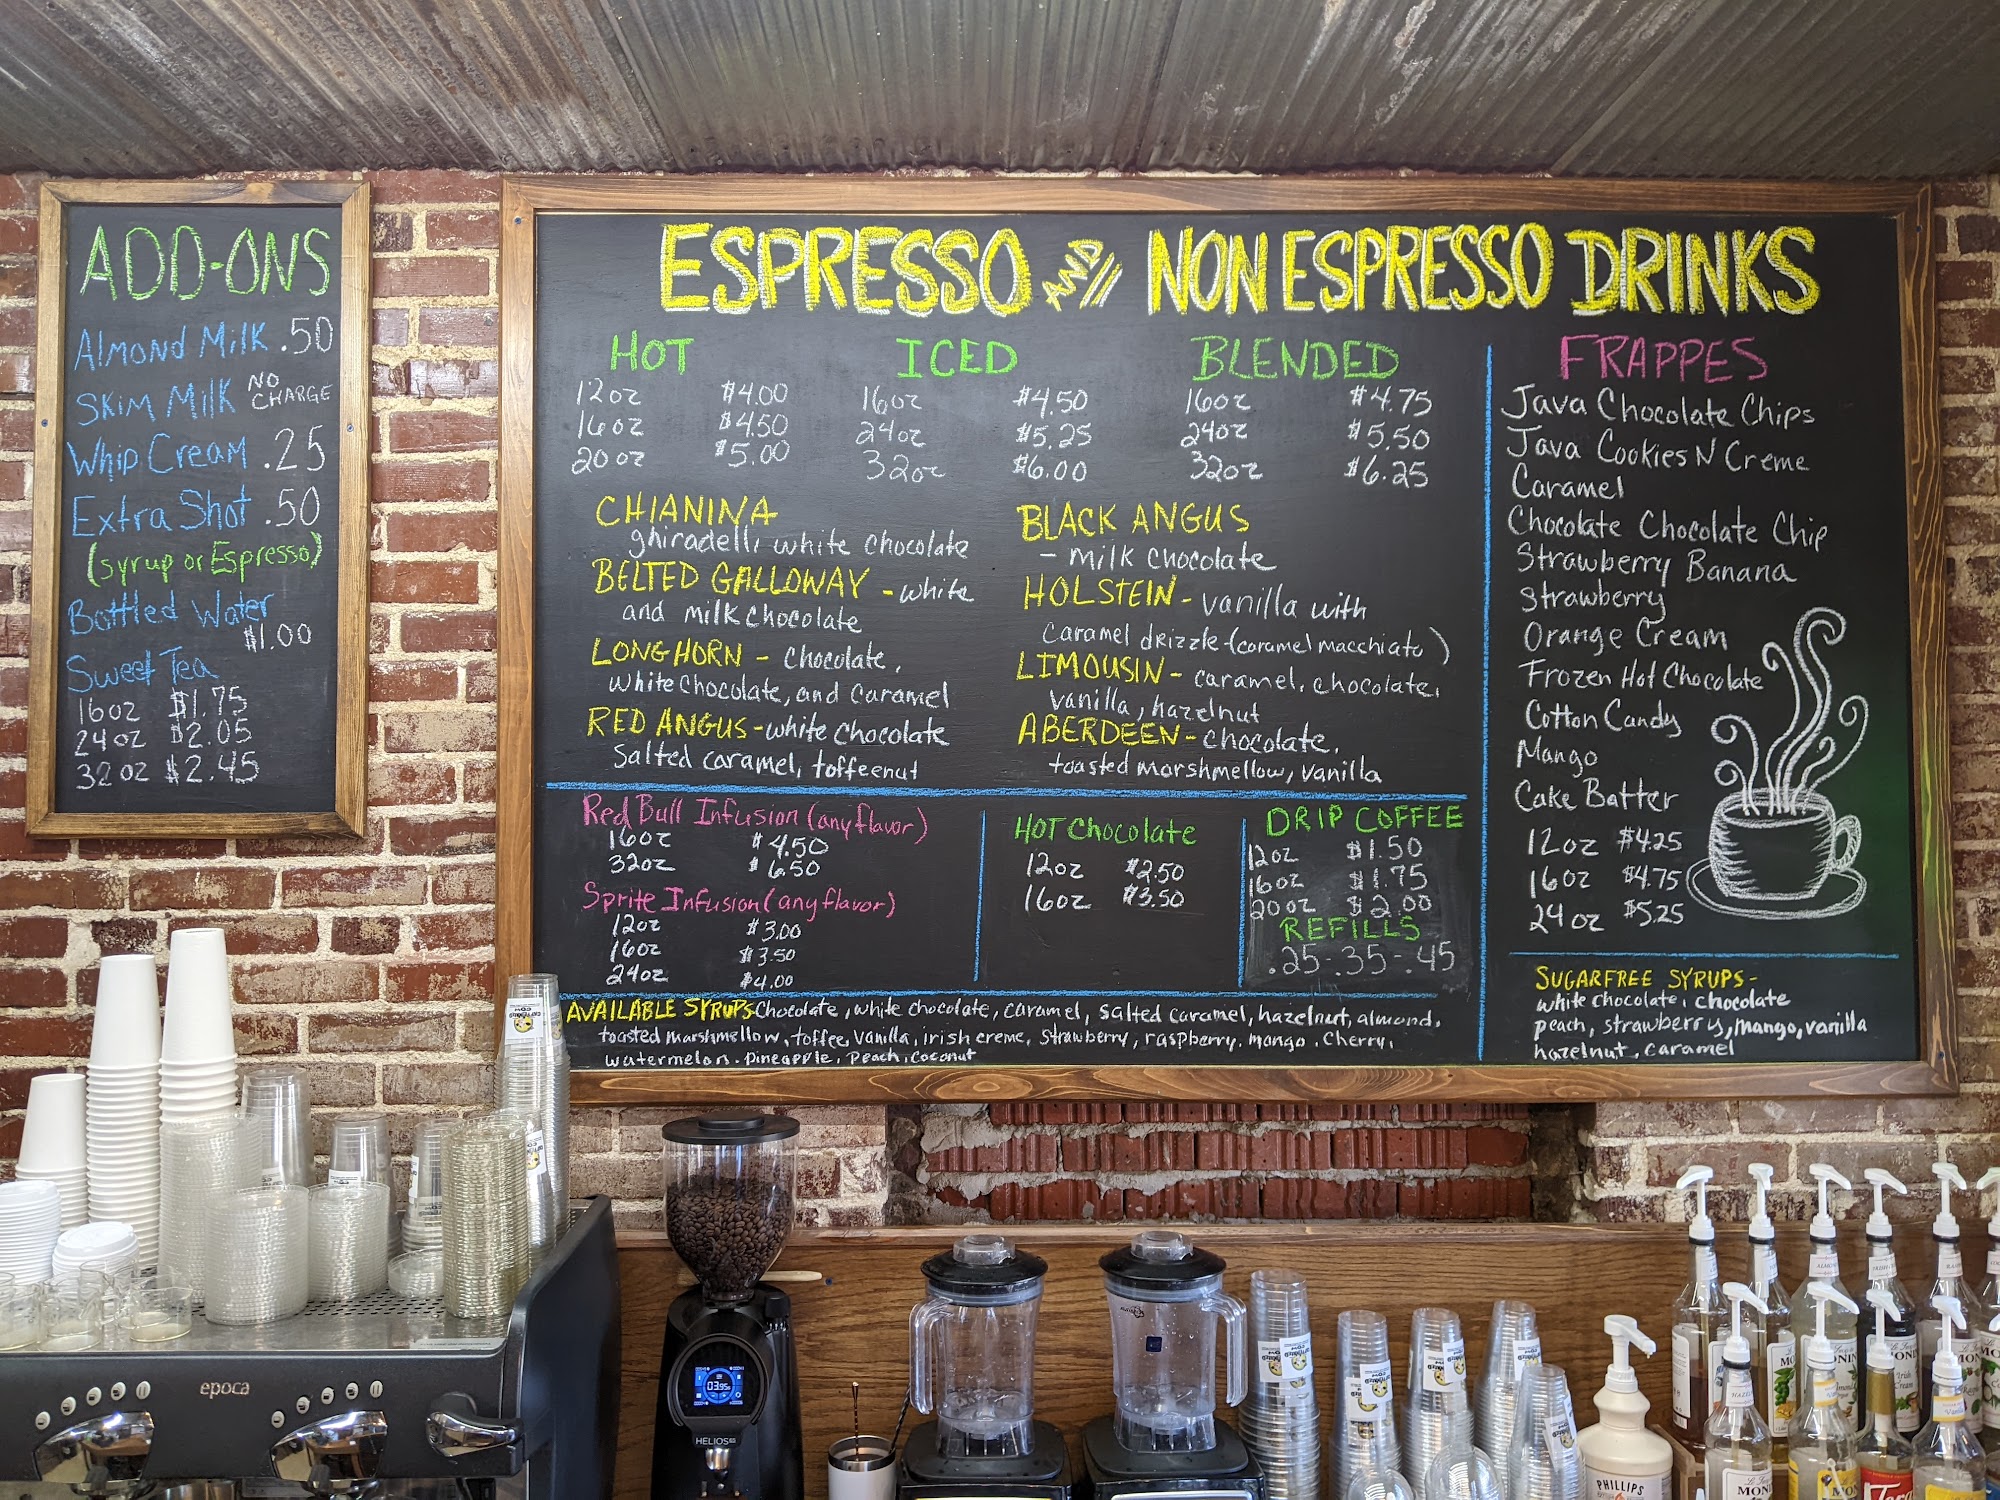 ADD-ONS
Almond Milk .50
Skim Milk NO CHARGE
Whip Cream .25
Extra Shot .50
(syrup or Espresso)
Bottled Water
$1.00
Sweet Tea
16oz $1.75
24oz $2.05
32oz $2.45
ESPRESSO AND NON ESPRESSO DRINKS
HOT
12oz $4.00
16oz $4.50
20oz $5.00
ICED
16oz $4.50
24oz $5.25
32oz $6.00
BLENDED
16oz $4.75
24oz $5.50
32oz $6.25
CHIANINA
ghiradelli white chocolate
BELTED GALLOWAY - white
and milk chocolate
LONGHORN - chocolate,
white chocolate, and caramel
RED ANGUS - white chocolate
salted caramel, toffeenut
BLACK ANGUS
- milk chocolate
HOLSTEIN - vanilla with
caramel drizzle - (caramel macchiato)
LIMOUSIN - caramel, chocolate,
vanilla, hazelnut
ABERDEEN - chocolate,
toasted marshmellow, vanilla
FRAPPES
Java Chocolate Chips
Java Cookies N Creme
Caramel
Chocolate Chocolate Chip
Strawberry Banana
Strawberry
Orange Cream
Frozen Hot Chocolate
Cotton Candy
Mango
Cake Batter
12oz $4.25
16oz $4.75
24oz $5.25
Red Bull Infusion (any flavor)
16oz $4.50
32oz $6.50
Sprite Infusion (any flavor)
12oz $3.00
16oz $3.50
24oz $4.00
HOT Chocolate
12oz $2.50
16oz $3.50
DRIP COFFEE
12oz $1.50
16oz $1.75
20oz $2.00
REFILLS
.25-.35-.45
AVAILABLE SYRUPS - Chocolate, white chocolate, caramel, salted caramel, hazelnut, almond,
toasted marshmellow, toffee, vanilla, irish creme, strawberry, raspberry, mango, cherry,
watermelon, pineapple, peach, coconut
SUGARFREE SYRUPS -
white chocolate, chocolate
peach, strawberry, mango, vanilla
hazelnut, caramel
epoca
HELIOS
PHILLIPS